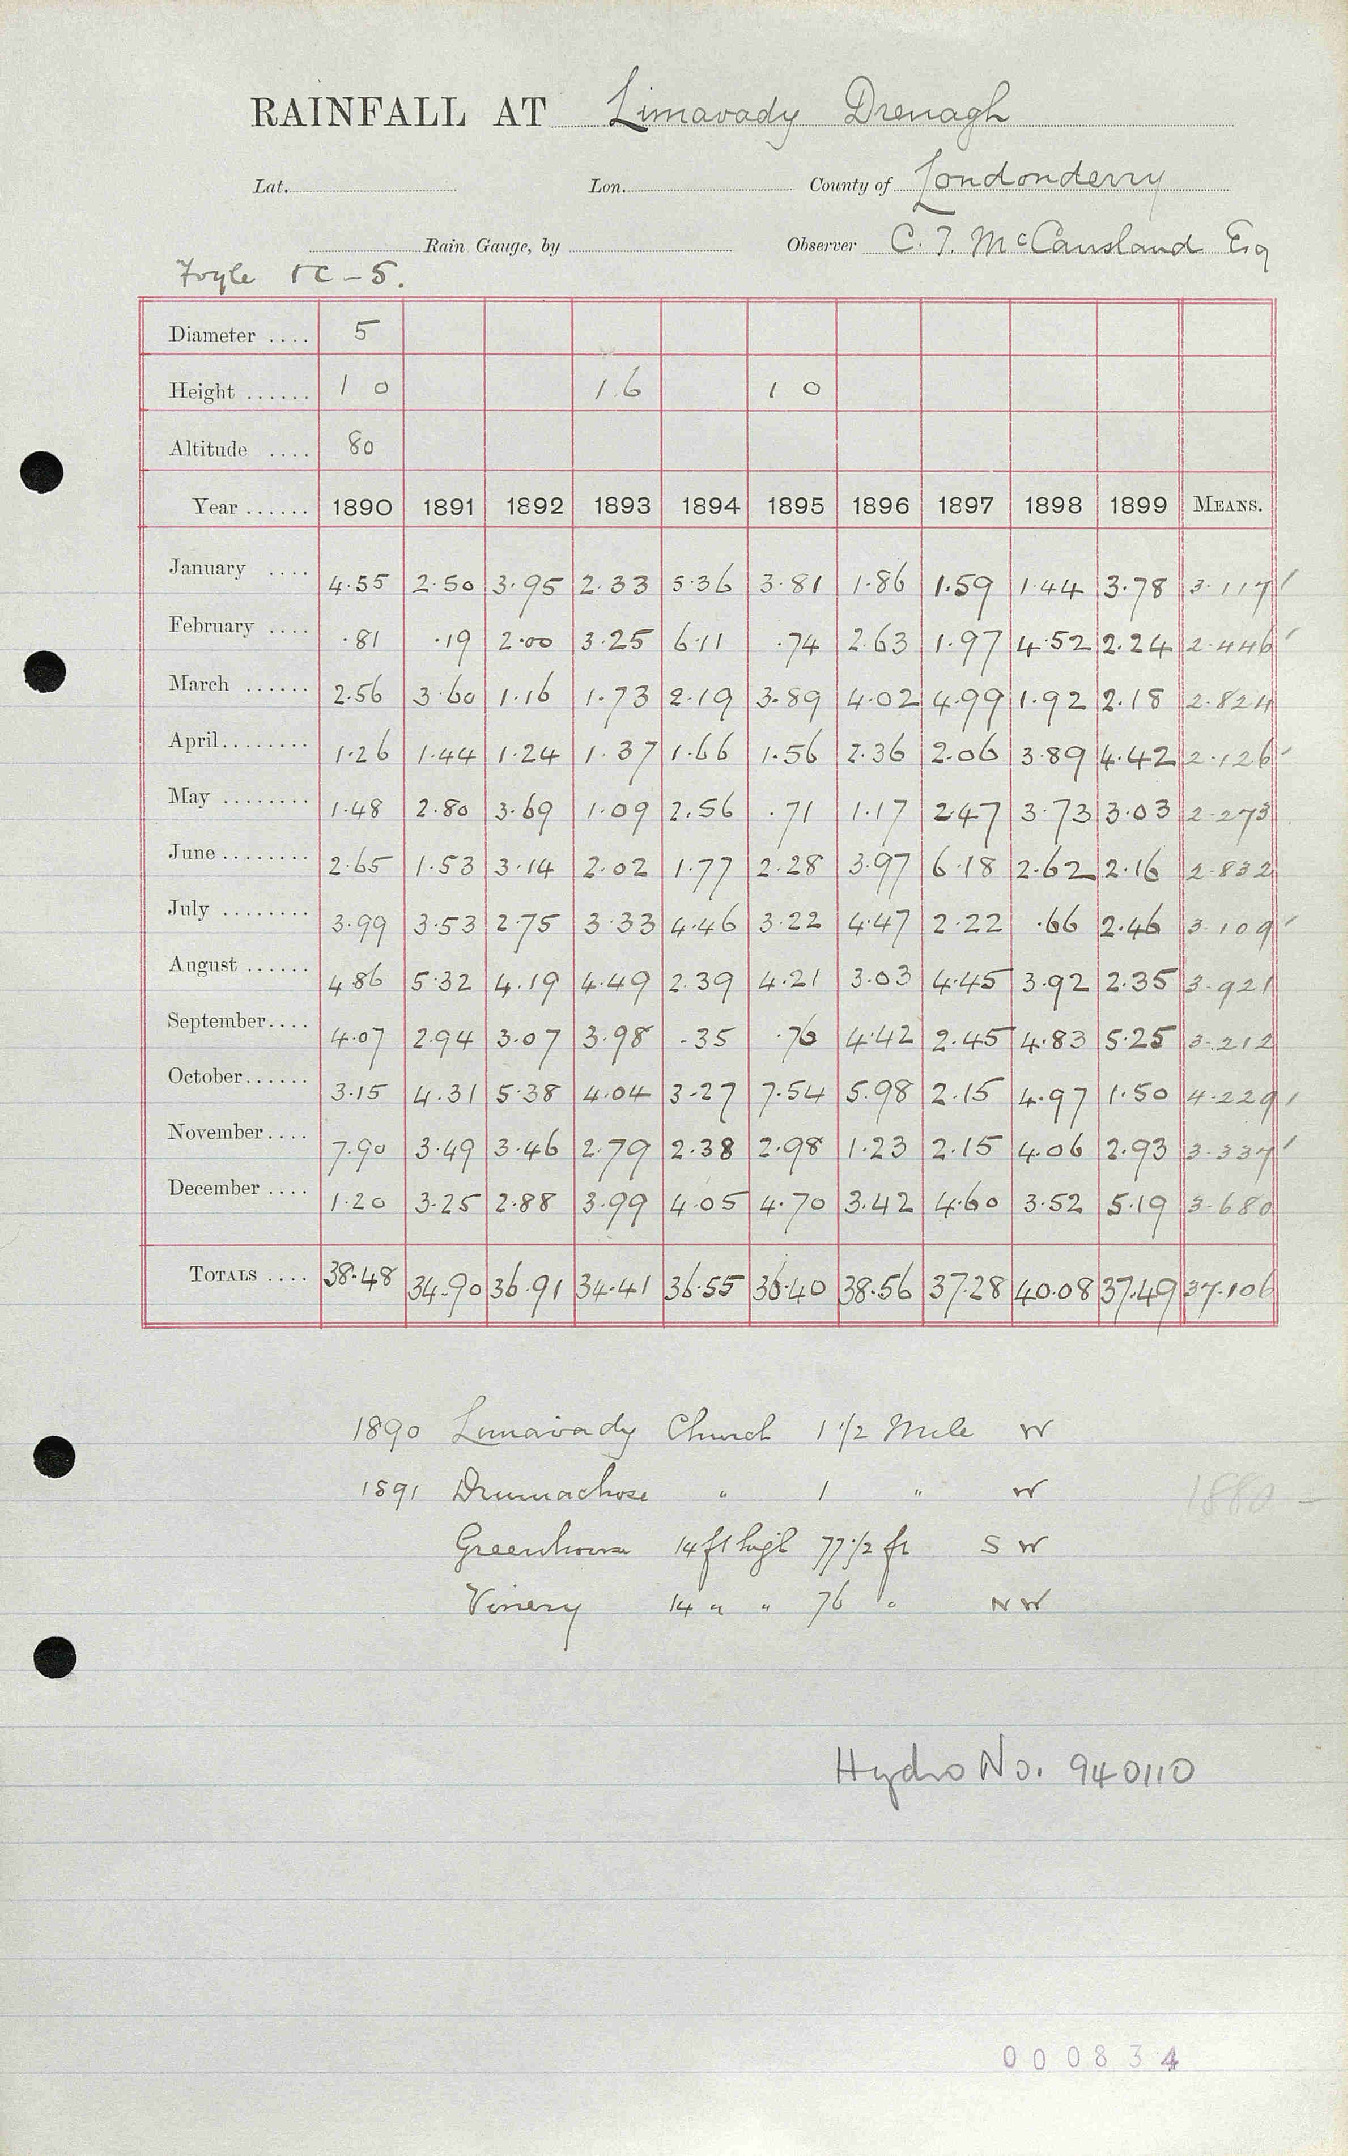 RAINFALL AT Limavady Drenagh
Lat. Lon. County of Londonderry
Rain Gauge, by Observer C. T. McCausland Esq
Foyle IC - 5.
Diameter .... 5
Height ...... 1 0 1.6 1 0
Altitude .... 80
Year ...... 1890 1891 1892 1893 1894 1895 1896 1897 1898 1899 MEANS.
January .... 4.55 2.50 3.95 2.33 5.36 3.81 1.86 1.59 1.44 3.78 3.117
February .... .81 .19 2.00 3.25 6.11 .74 2.63 1.97 4.52 2.24 2.446
March ...... 2.56 3.60 1.16 1.73 2.19 3.89 4.02 4.99 1.92 2.18 2.824
April........ 1.26 1.44 1.24 1.37 1.66 1.56 2.36 2.06 3.89 4.42 2.126
May ........ 1.48 2.80 3.69 1.09 2.56 .71 1.17 2.47 3.73 3.03 2.273
June ........ 2.65 1.53 3.14 2.02 1.77 2.28 3.97 6.18 2.62 2.16 2.832
July ........ 3.99 3.53 2.75 3.33 4.46 3.22 4.47 2.22 .66 2.46 3.109
August ...... 4.86 5.32 4.19 4.49 2.39 4.21 3.03 4.45 3.92 2.35 3.921
September.... 4.07 2.94 3.07 3.98 .35 .76 4.42 2.45 4.83 5.25 3.212
October...... 3.15 4.31 5.38 4.04 3.27 7.54 5.98 2.15 4.97 1.50 4.229
November.... 7.90 3.49 3.46 2.79 2.38 2.98 1.23 2.15 4.06 2.93 3.337
December .... 1.20 3.25 2.88 3.99 4.05 4.70 3.42 4.60 3.52 5.19 3.680
TOTALS .... 38.48 34.90 36.91 34.41 36.55 36.40 38.56 37.28 40.08 37.49 37.106
1890 Limavady Church 1 1/2 Mile W
1891 Drumachose " 1 " W
1880 -
Greenhouse 14 ft high 77 1/2 ft S W
Vinery 14 " " 76 " N W
Hydro No. 940110
000834